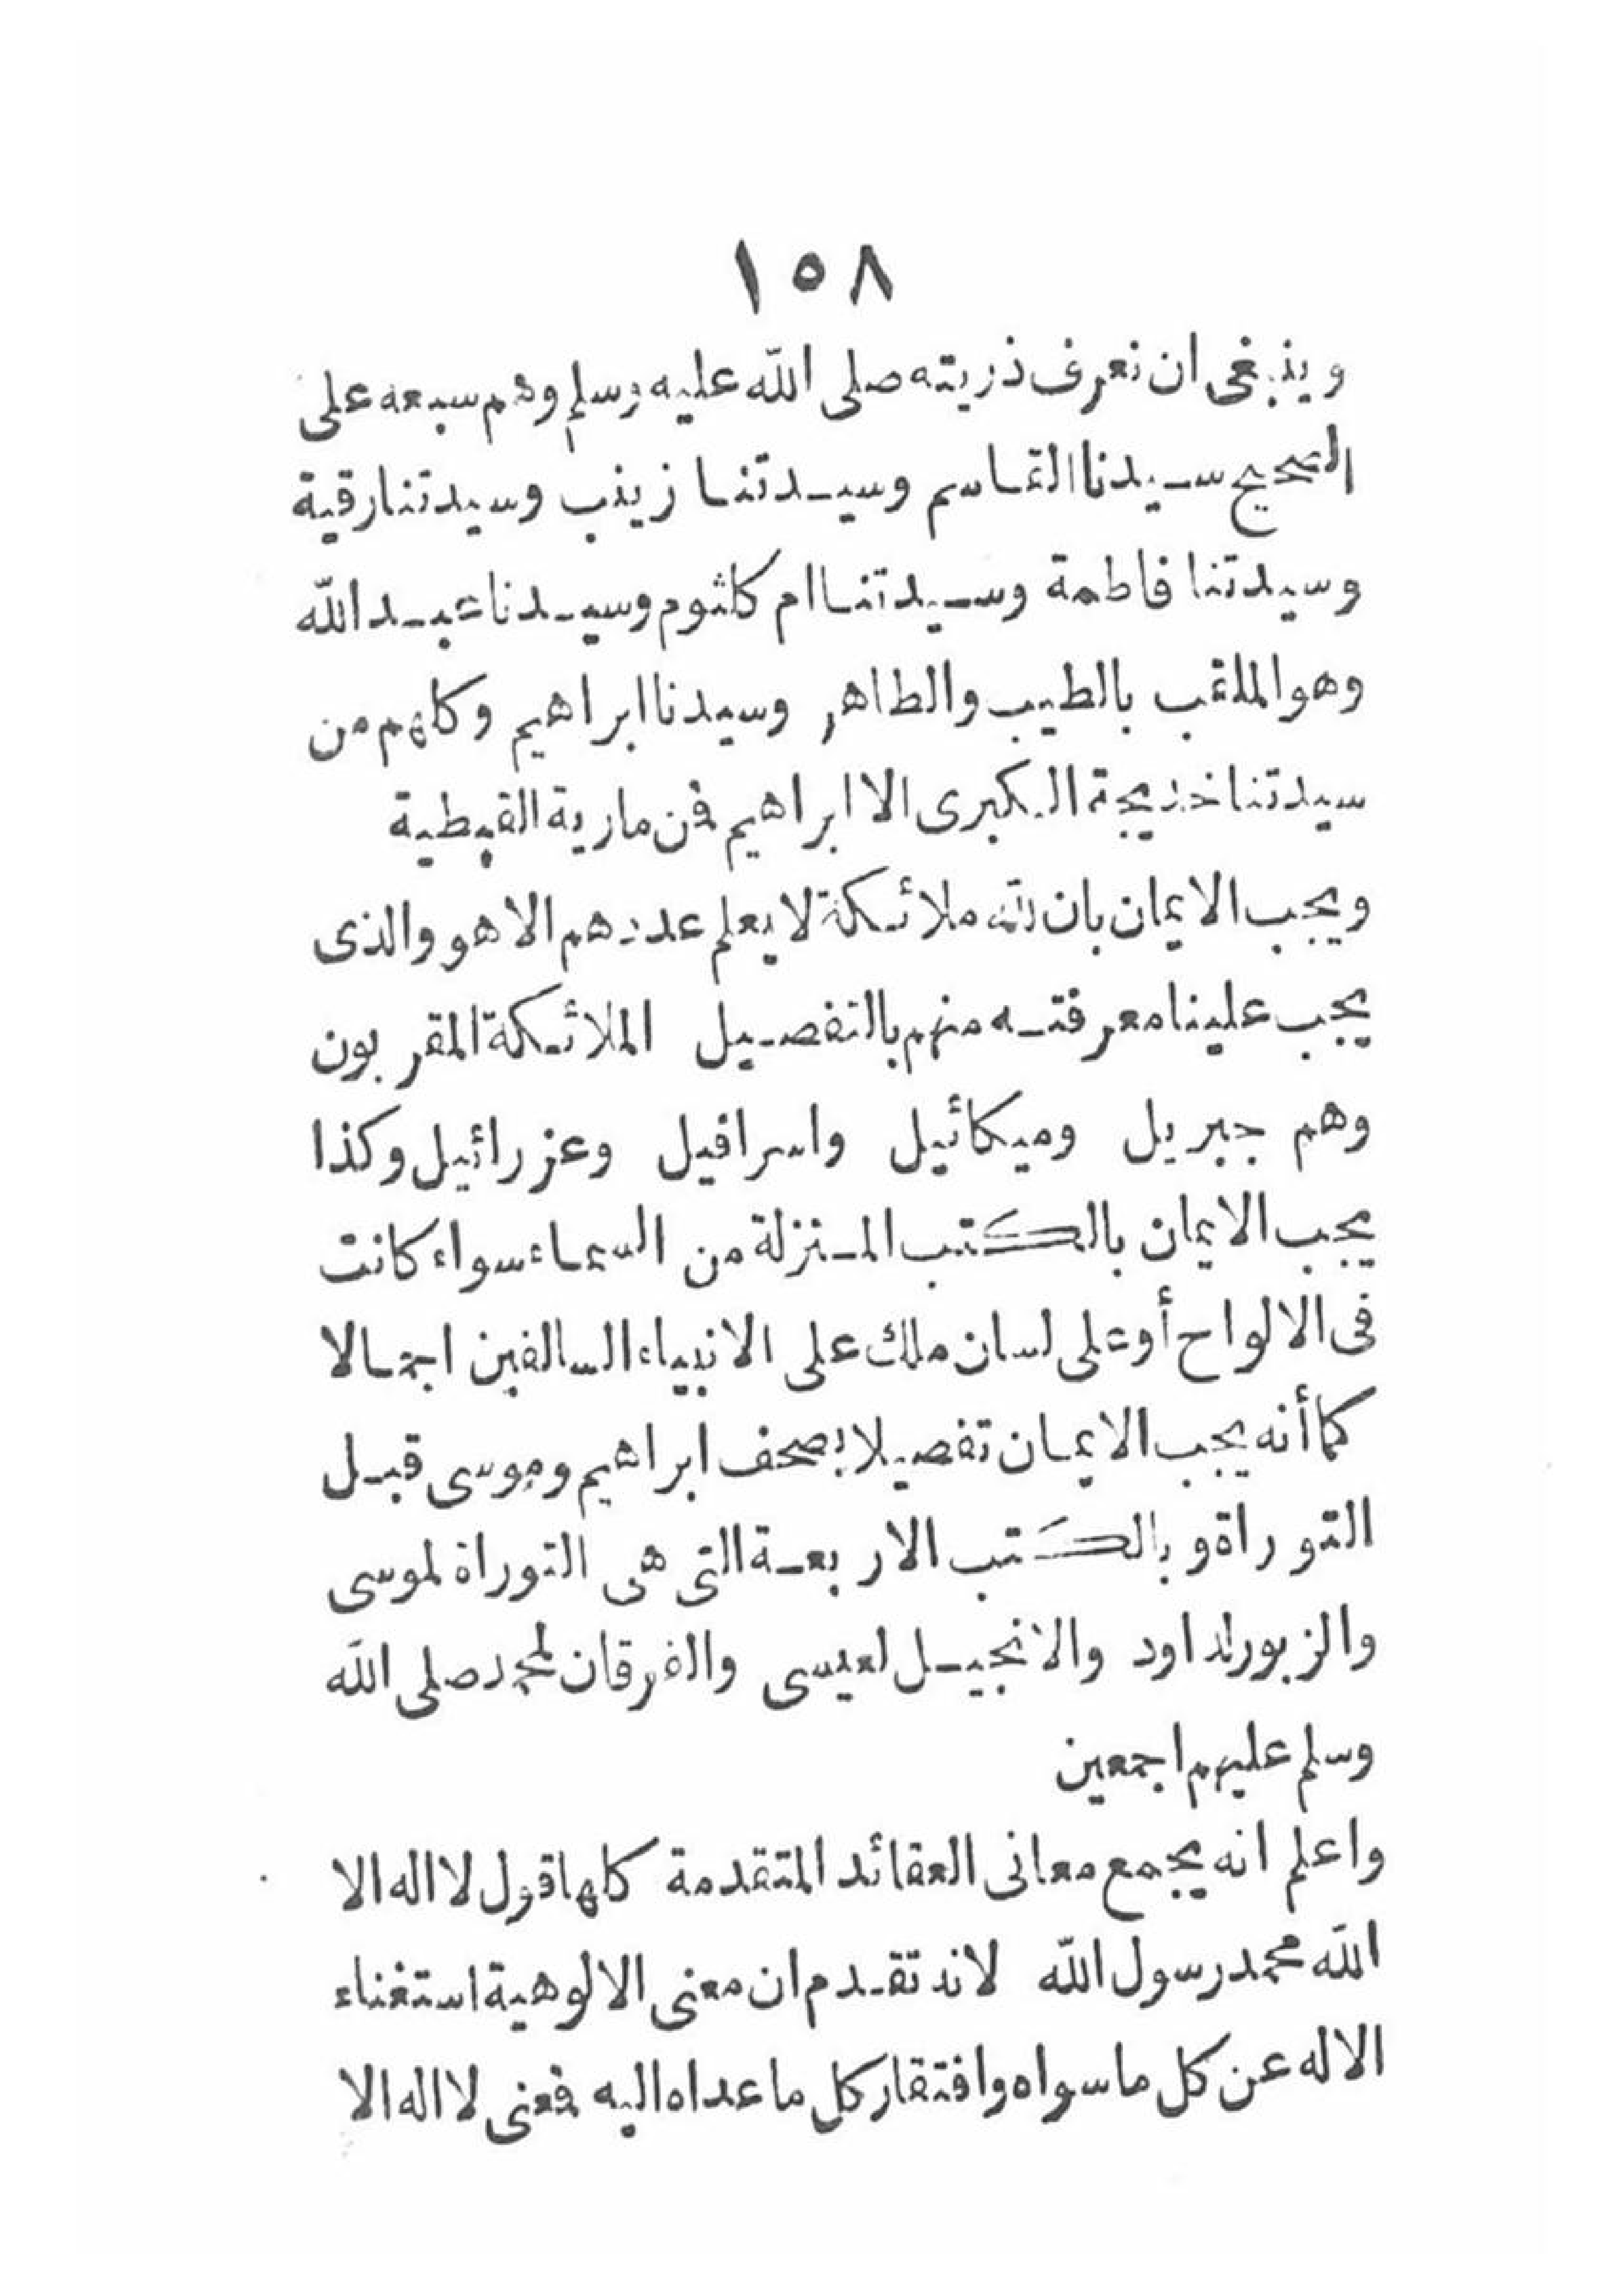 ١٥٨
وينبغى ان نعرف ذريته صلى الله عليه وسلم وهم سبعه على
الصحيح سيدنا القاسم وسيدتنا زينب وسيدتنا رقية
وسيدتنا فاطمة وسيدتنا ام كلثوم وسيدنا عبد الله
وهو الملقب بالطيب والطاهر وسيدنا ابراهيم وكلهم من
سيدتنا خديجة الكبرى الا ابراهيم فمن مارية القبطية
ويجب الايمان بان لله ملائكة لا يعلم عددهم الا هو والذى
يجب علينا معرفته منهم بالتفصيل الملائكة المقربون
وهم جبريل وميكائيل واسرافيل وعزرائيل وكذا
يجب الايمان بالكتب المنزلة من السماء سواء كانت
فى الالواح أو على لسان ملك على الانبياء السالفين اجمالا
كما أنه يجب الايمان تفصيلا بصحف ابراهيم وموسى قبل
التوراة وبالكتب الاربعة التى هى التوراة لموسى
والزبور لداود والانجيل لعيسى والفرقان لمحمد صلى الله
وسلم عليهم اجمعين
واعلم انه يجمع معانى العقائد المتقدمة كلها قول لا اله الا
الله محمد رسول الله لانه تقدم ان معنى الالوهية استغناء
الاله عن كل ما سواه وافتقار كل ما عداه اليه فمعنى لا اله الا